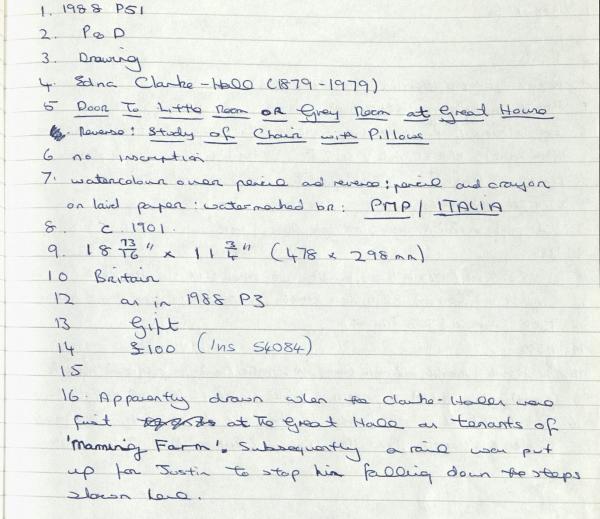 1. 1988 P51
2. P&D
3. Drawing
4. Edna Clarke-Hall (1879-1979)
5 Door To Little Room or Grey Room at Great House
Reverse: Study of Chair with Pillows
6 no inscription
7. watercolour over pencil and reverse: pencil and crayon
on laid paper: watermarked br: PMP / ITALIA
8. c. 1901.
9. 18 13/16" x 11 3/4" (478 x 298 mm)
10 Britain
12 as in 1988 P3
13 Gift
14 £100 (Ins 54084)
15
16. Apparently drawn when the Clarke-Halls were
first at The Great Hall as tenants of
'Manning Farm'. Subsequently a rail was put
up for Justin to stop him falling down the steps
shown here.